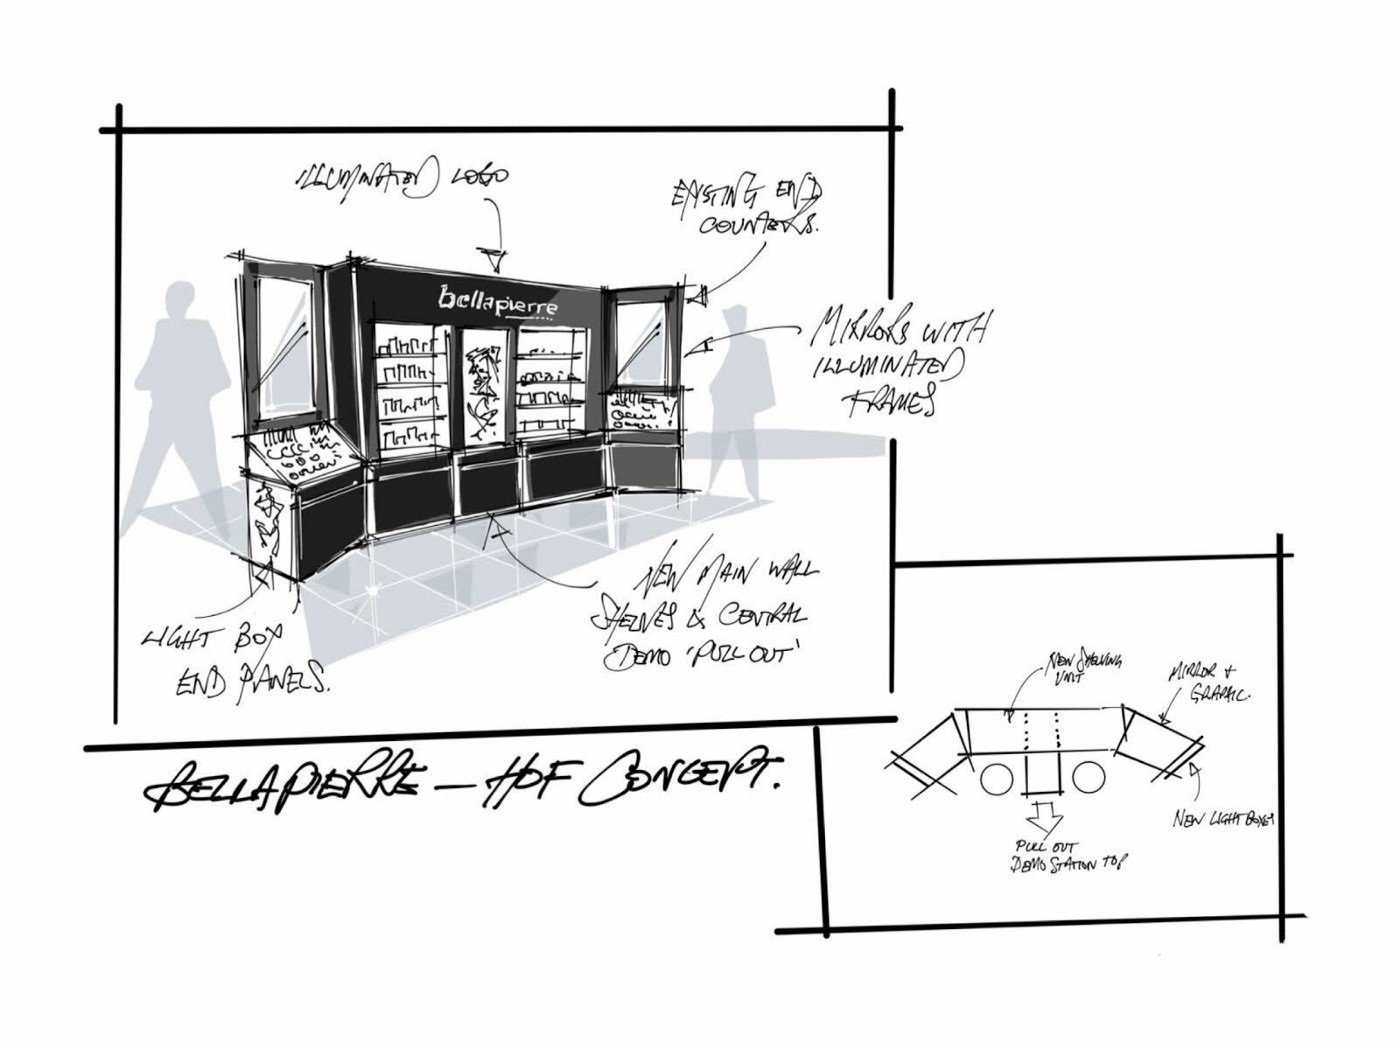 ILLUMINATED LOGO
EXISTING END
COUNTERS.
bellapierre
MIRRORS WITH
ILLUMINATED
FRAMES
NEW MAIN WALL
SHELVES & CENTRAL
DEMO 'PULL OUT'
LIGHT BOX
END PANELS.
BELLAPIERRE - HOF CONCEPT.
NEW SHELVING
UNIT
MIRROR +
GRAPHIC.
NEW LIGHT BOXES
PULL OUT
DEMO STATION TOP